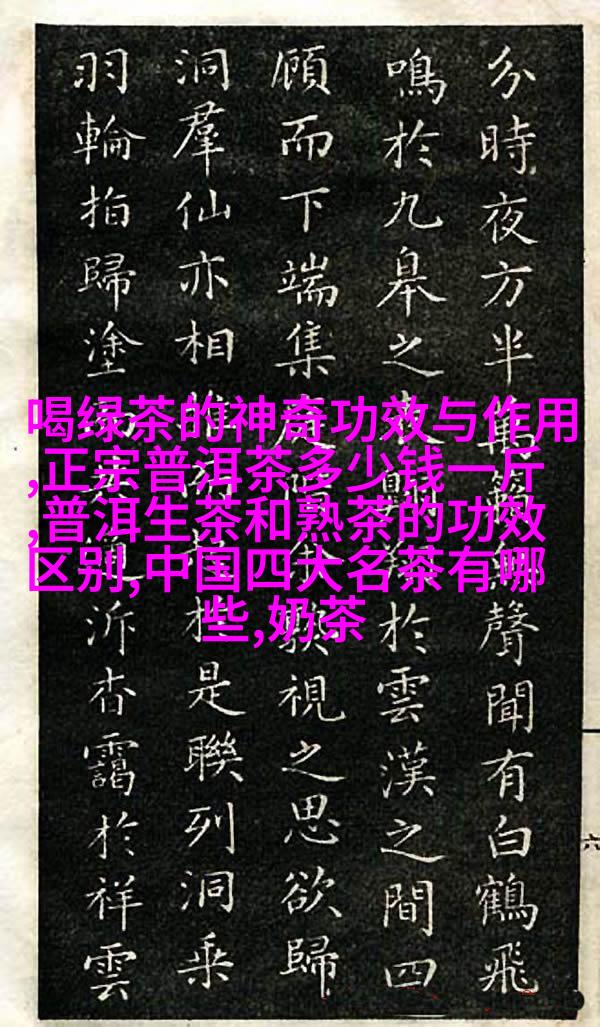 喝绿茶的神奇功效与作用
,正宗普洱茶多少钱一斤
,普洱生茶和熟茶的功效
区别,中国四大名茶有哪
些,奶茶
分時夜方半聲聞有白鶴飛
鳴於九皋之於雲漢之間四
顧而下端集視之思欲歸
洞羣仙亦相是聯列洞乘
羽輪指歸塗泝杳靄於祥雲
六